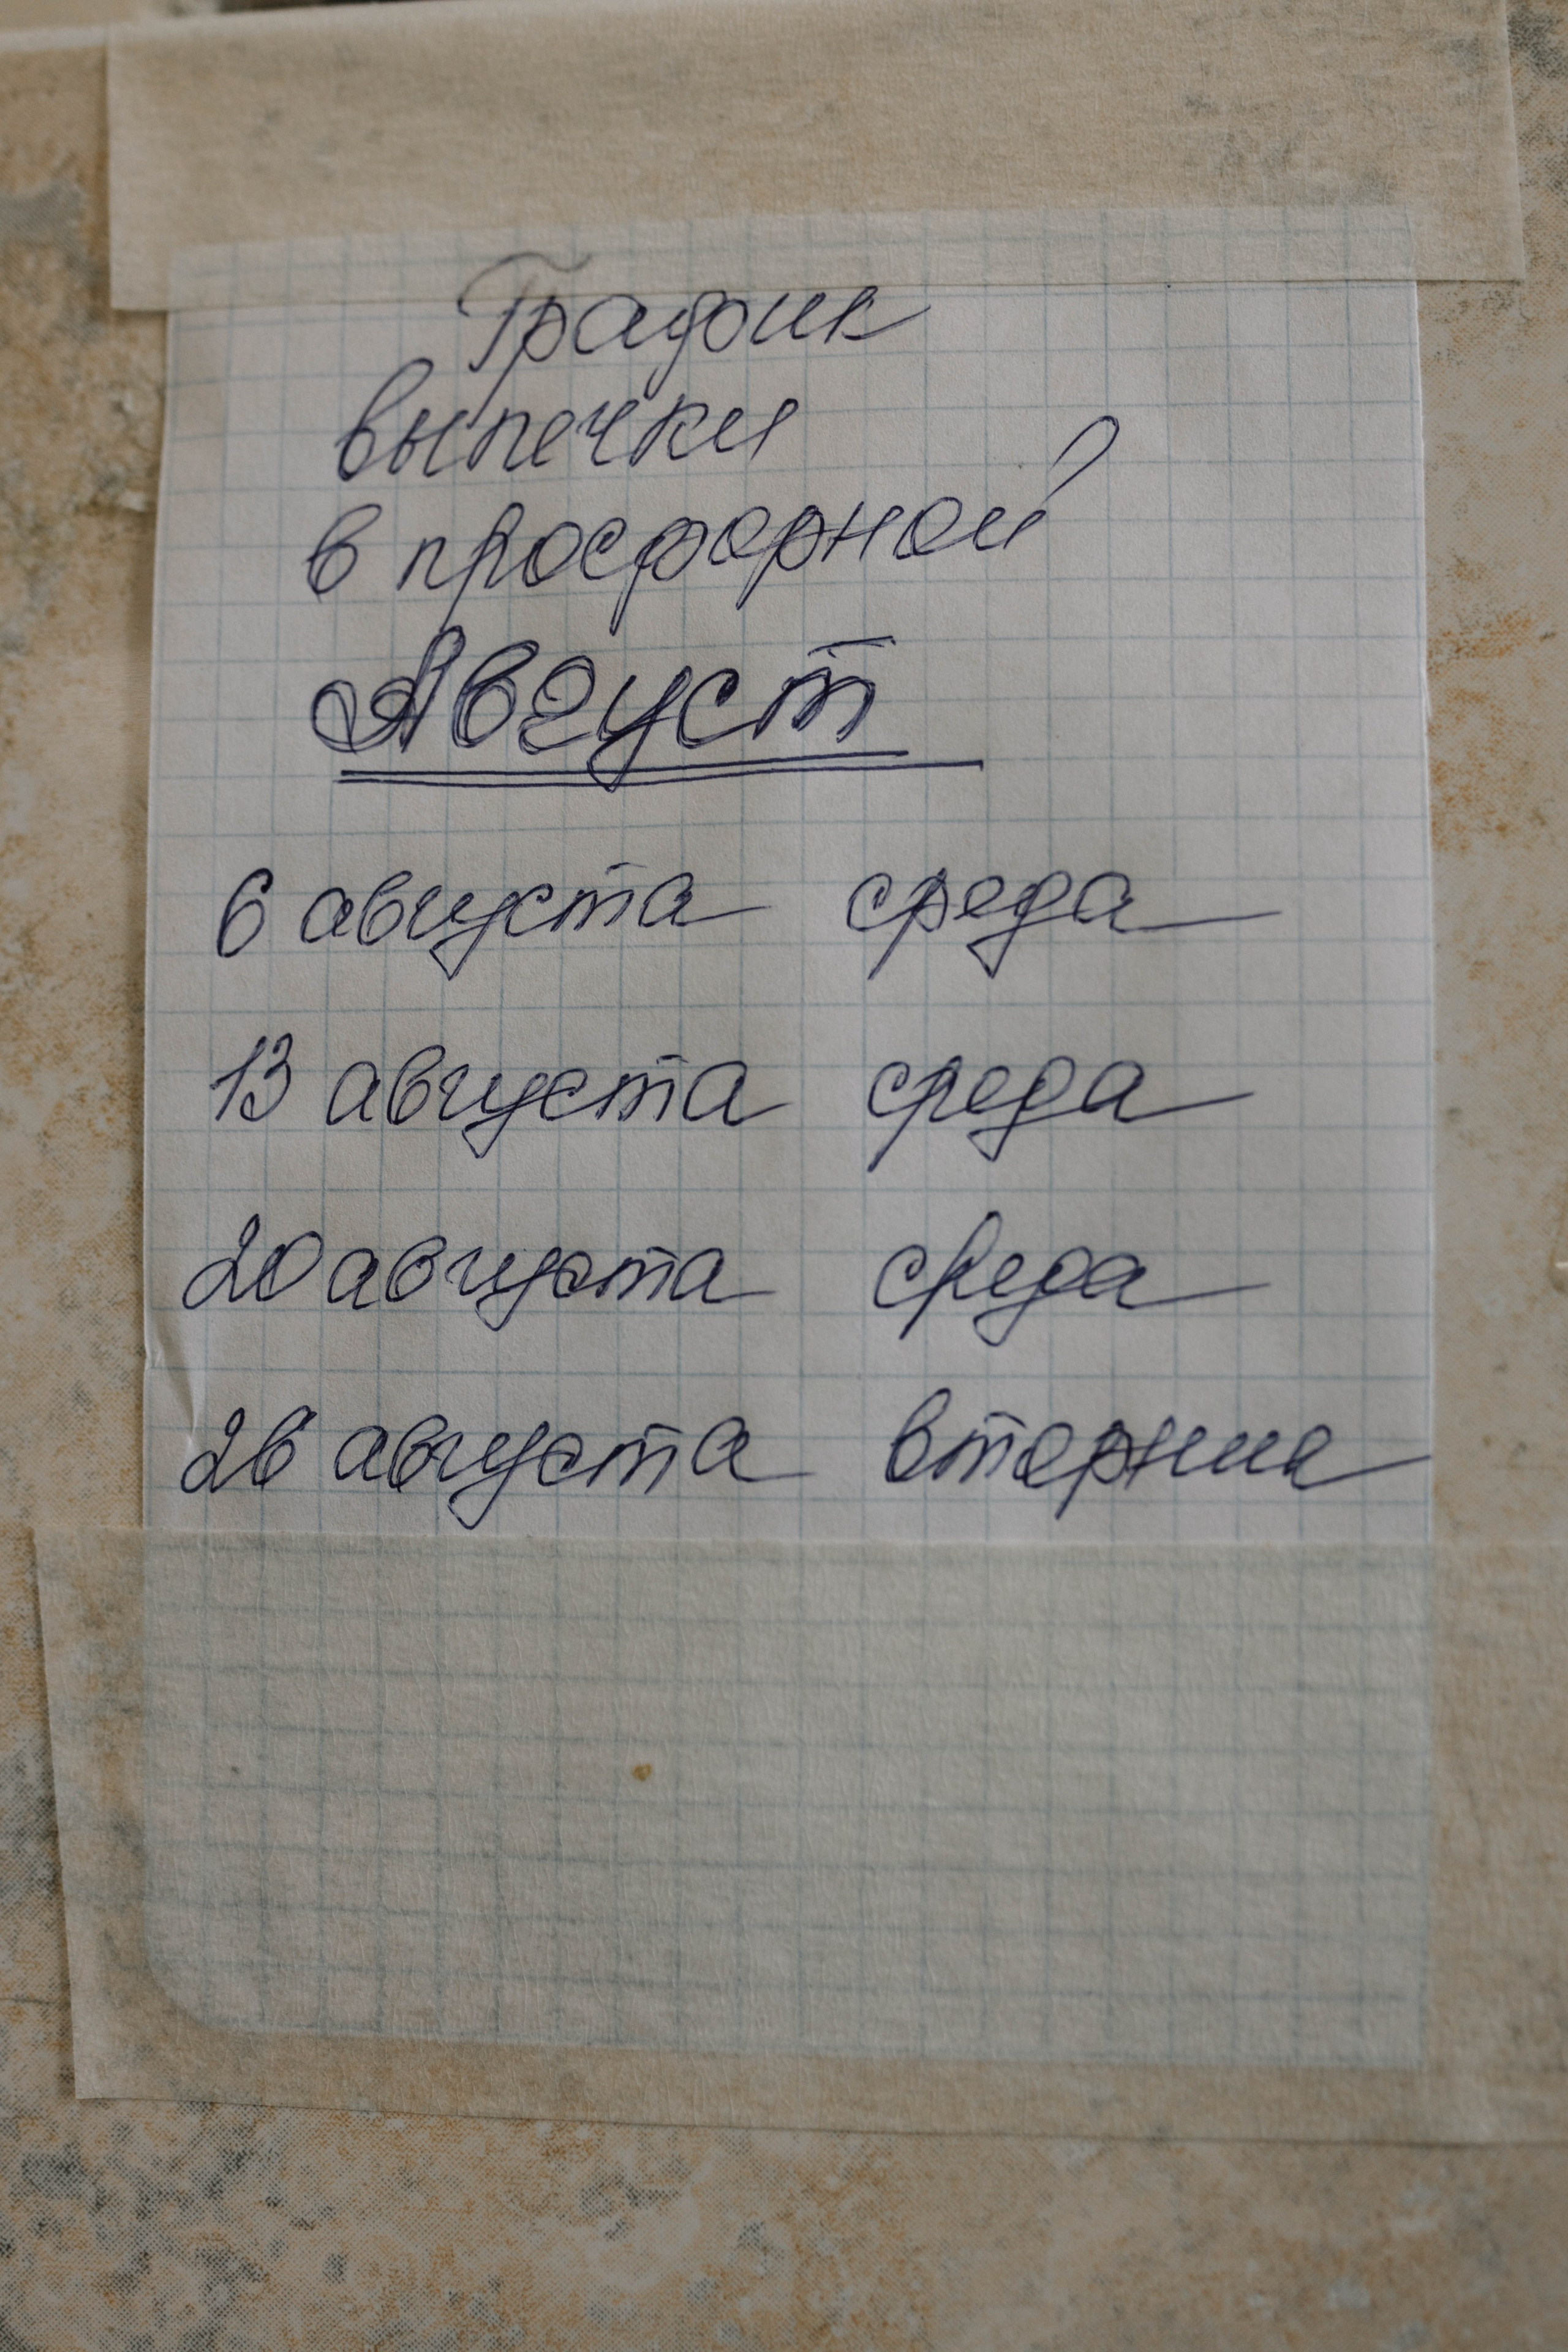 График
выпечки
в просфорной
Август
6 августа среда
13 августа среда
20 августа среда
26 августа вторник